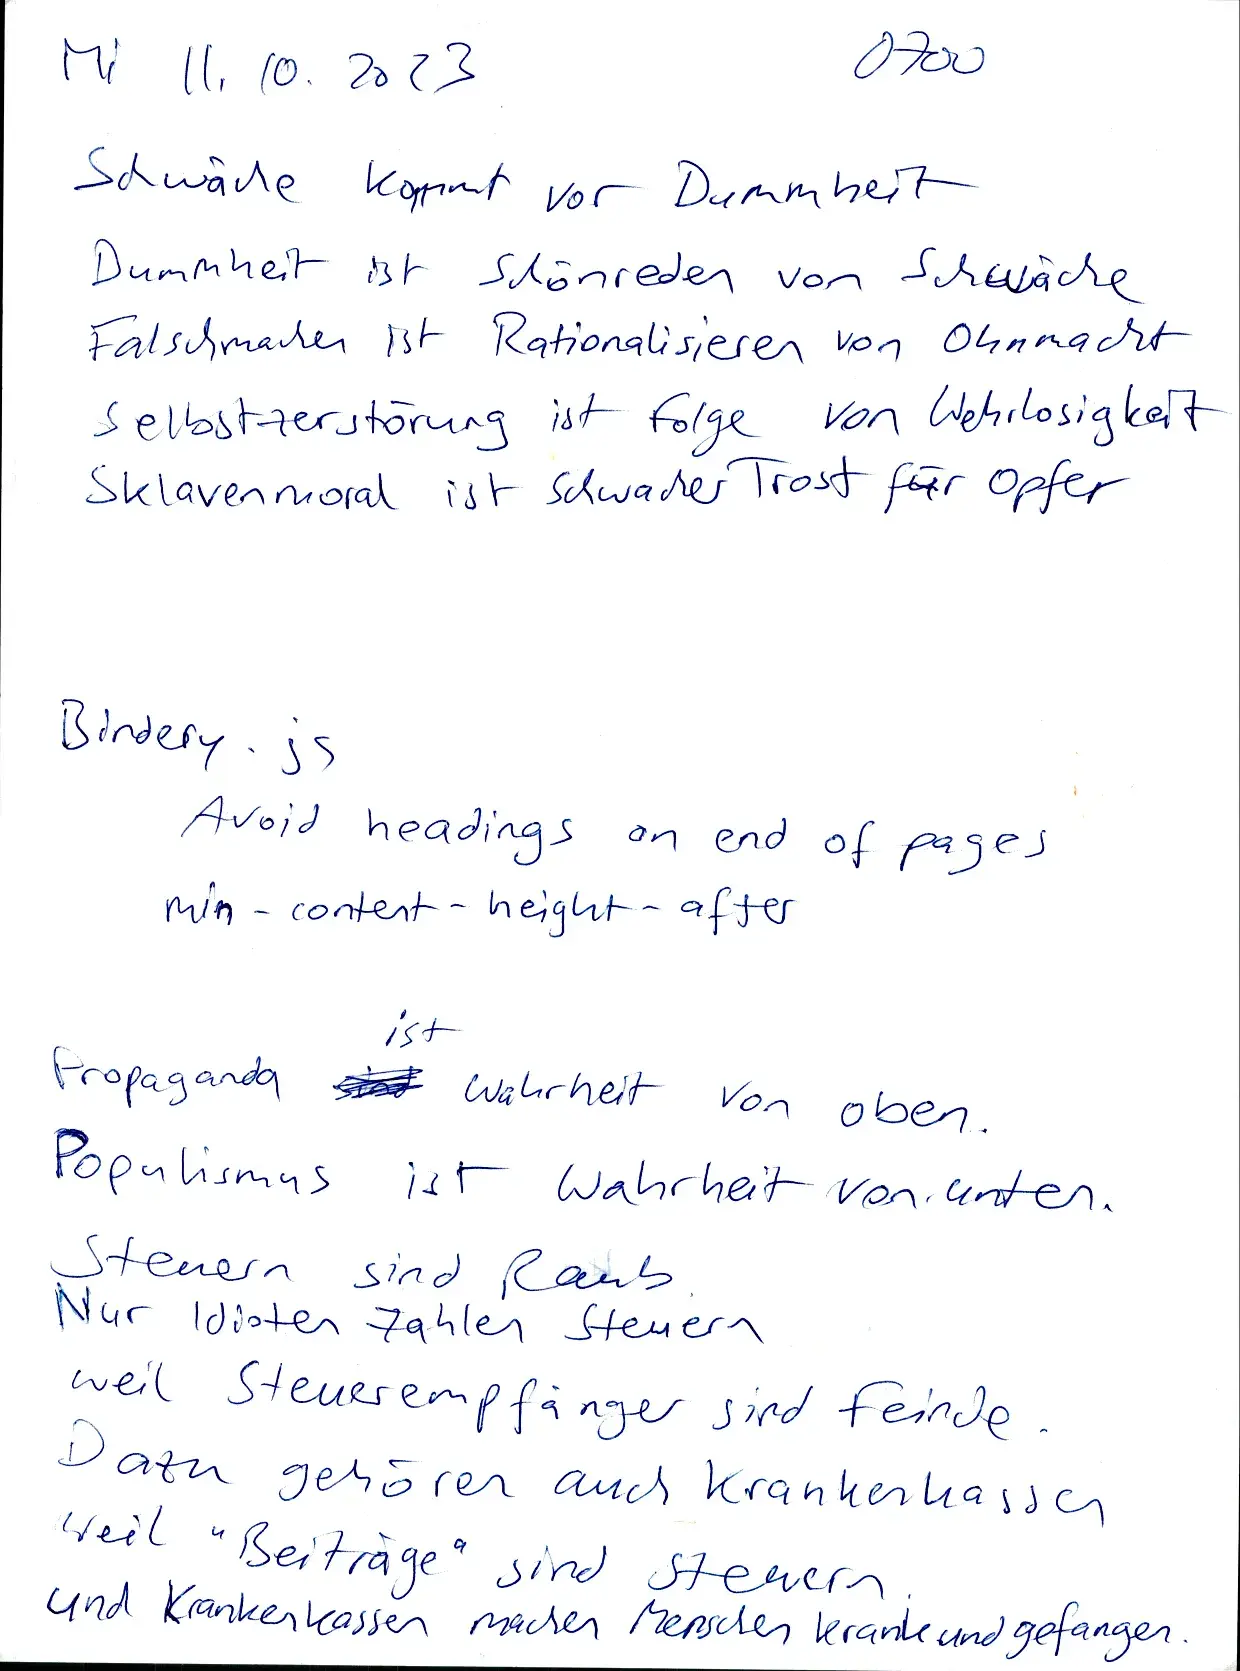 Mi 11.10.2023 0700
Schwäche kommt vor Dummheit
Dummheit ist Schönreden von Schwäche
Falschmachen ist Rationalisieren von Ohnmacht
Selbstzerstörung ist Folge von Wehrlosigkeit
Sklavenmoral ist schwacher Trost für Opfer
Bindery.js
Avoid headings on end of pages
min-content-height-after
ist
Propaganda Wahrheit von oben.
Populismus ist Wahrheit von unten.
Steuern sind Raub.
Nur Idioten zahlen Steuern
weil Steuerempfänger sind Feinde.
Dazu gehören auch Krankenkassen
weil "Beiträge" sind Steuern.
und Krankenkassen machen Menschen krank und gefangen.